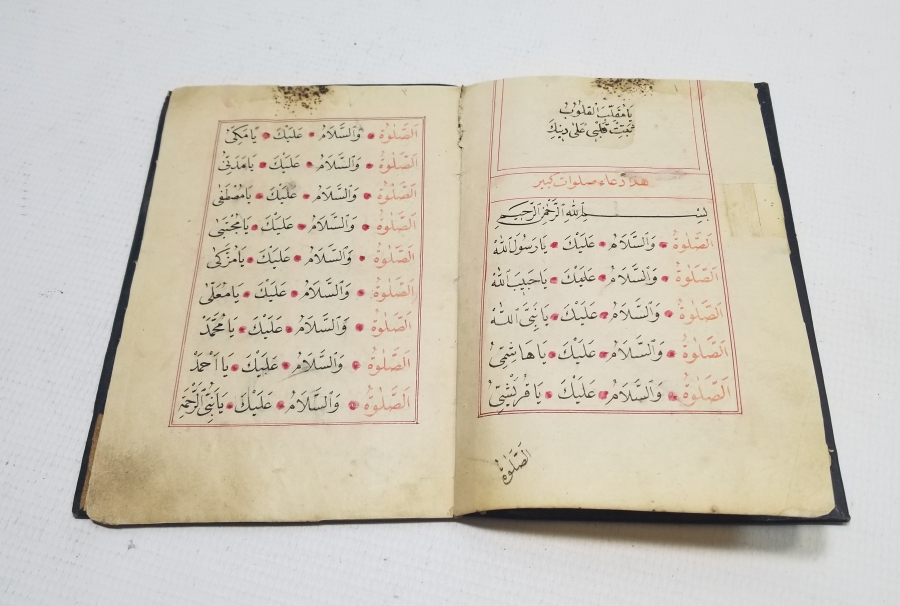 يَا مُقَلِّبَ الْقُلُوبِ
ثَبِّتْ قَلْبِي عَلَى دِينِكَ
هذا دعاء صلوات كبير
بِسْمِ اللهِ الرَّحْمٰنِ الرَّحِيمِ
اَلصَّلٰوةُ وَالسَّلَامُ عَلَيْكَ يَا رَسُولَ اللهِ
اَلصَّلٰوةُ وَالسَّلَامُ عَلَيْكَ يَا حَبِيبَ اللهِ
اَلصَّلٰوةُ وَالسَّلَامُ عَلَيْكَ يَا نَبِىَّ اللهِ
اَلصَّلٰوةُ وَالسَّلَامُ عَلَيْكَ يَا هَاشِمِىُّ
اَلصَّلٰوةُ وَالسَّلَامُ عَلَيْكَ يَا قُرَيْشِىُّ
اَلصَّلٰوةُ
اَلصَّلٰوةُ وَالسَّلَامُ عَلَيْكَ يَا مَكِّىُّ
اَلصَّلٰوةُ وَالسَّلَامُ عَلَيْكَ يَا مَدَنِىُّ
اَلصَّلٰوةُ وَالسَّلَامُ عَلَيْكَ يَا مُصْطَفٰى
اَلصَّلٰوةُ وَالسَّلَامُ عَلَيْكَ يَا مُجْتَبٰى
اَلصَّلٰوةُ وَالسَّلَامُ عَلَيْكَ يَا مُزَكّٰى
اَلصَّلٰوةُ وَالسَّلَامُ عَلَيْكَ يَا مُعَلّٰى
اَلصَّلٰوةُ وَالسَّلَامُ عَلَيْكَ يَا مُحَمَّدُ
اَلصَّلٰوةُ وَالسَّلَامُ عَلَيْكَ يَا اَحْمَدُ
اَلصَّلٰوةُ وَالسَّلَامُ عَلَيْكَ يَا نَبِىَّ الرَّحْمَةِ